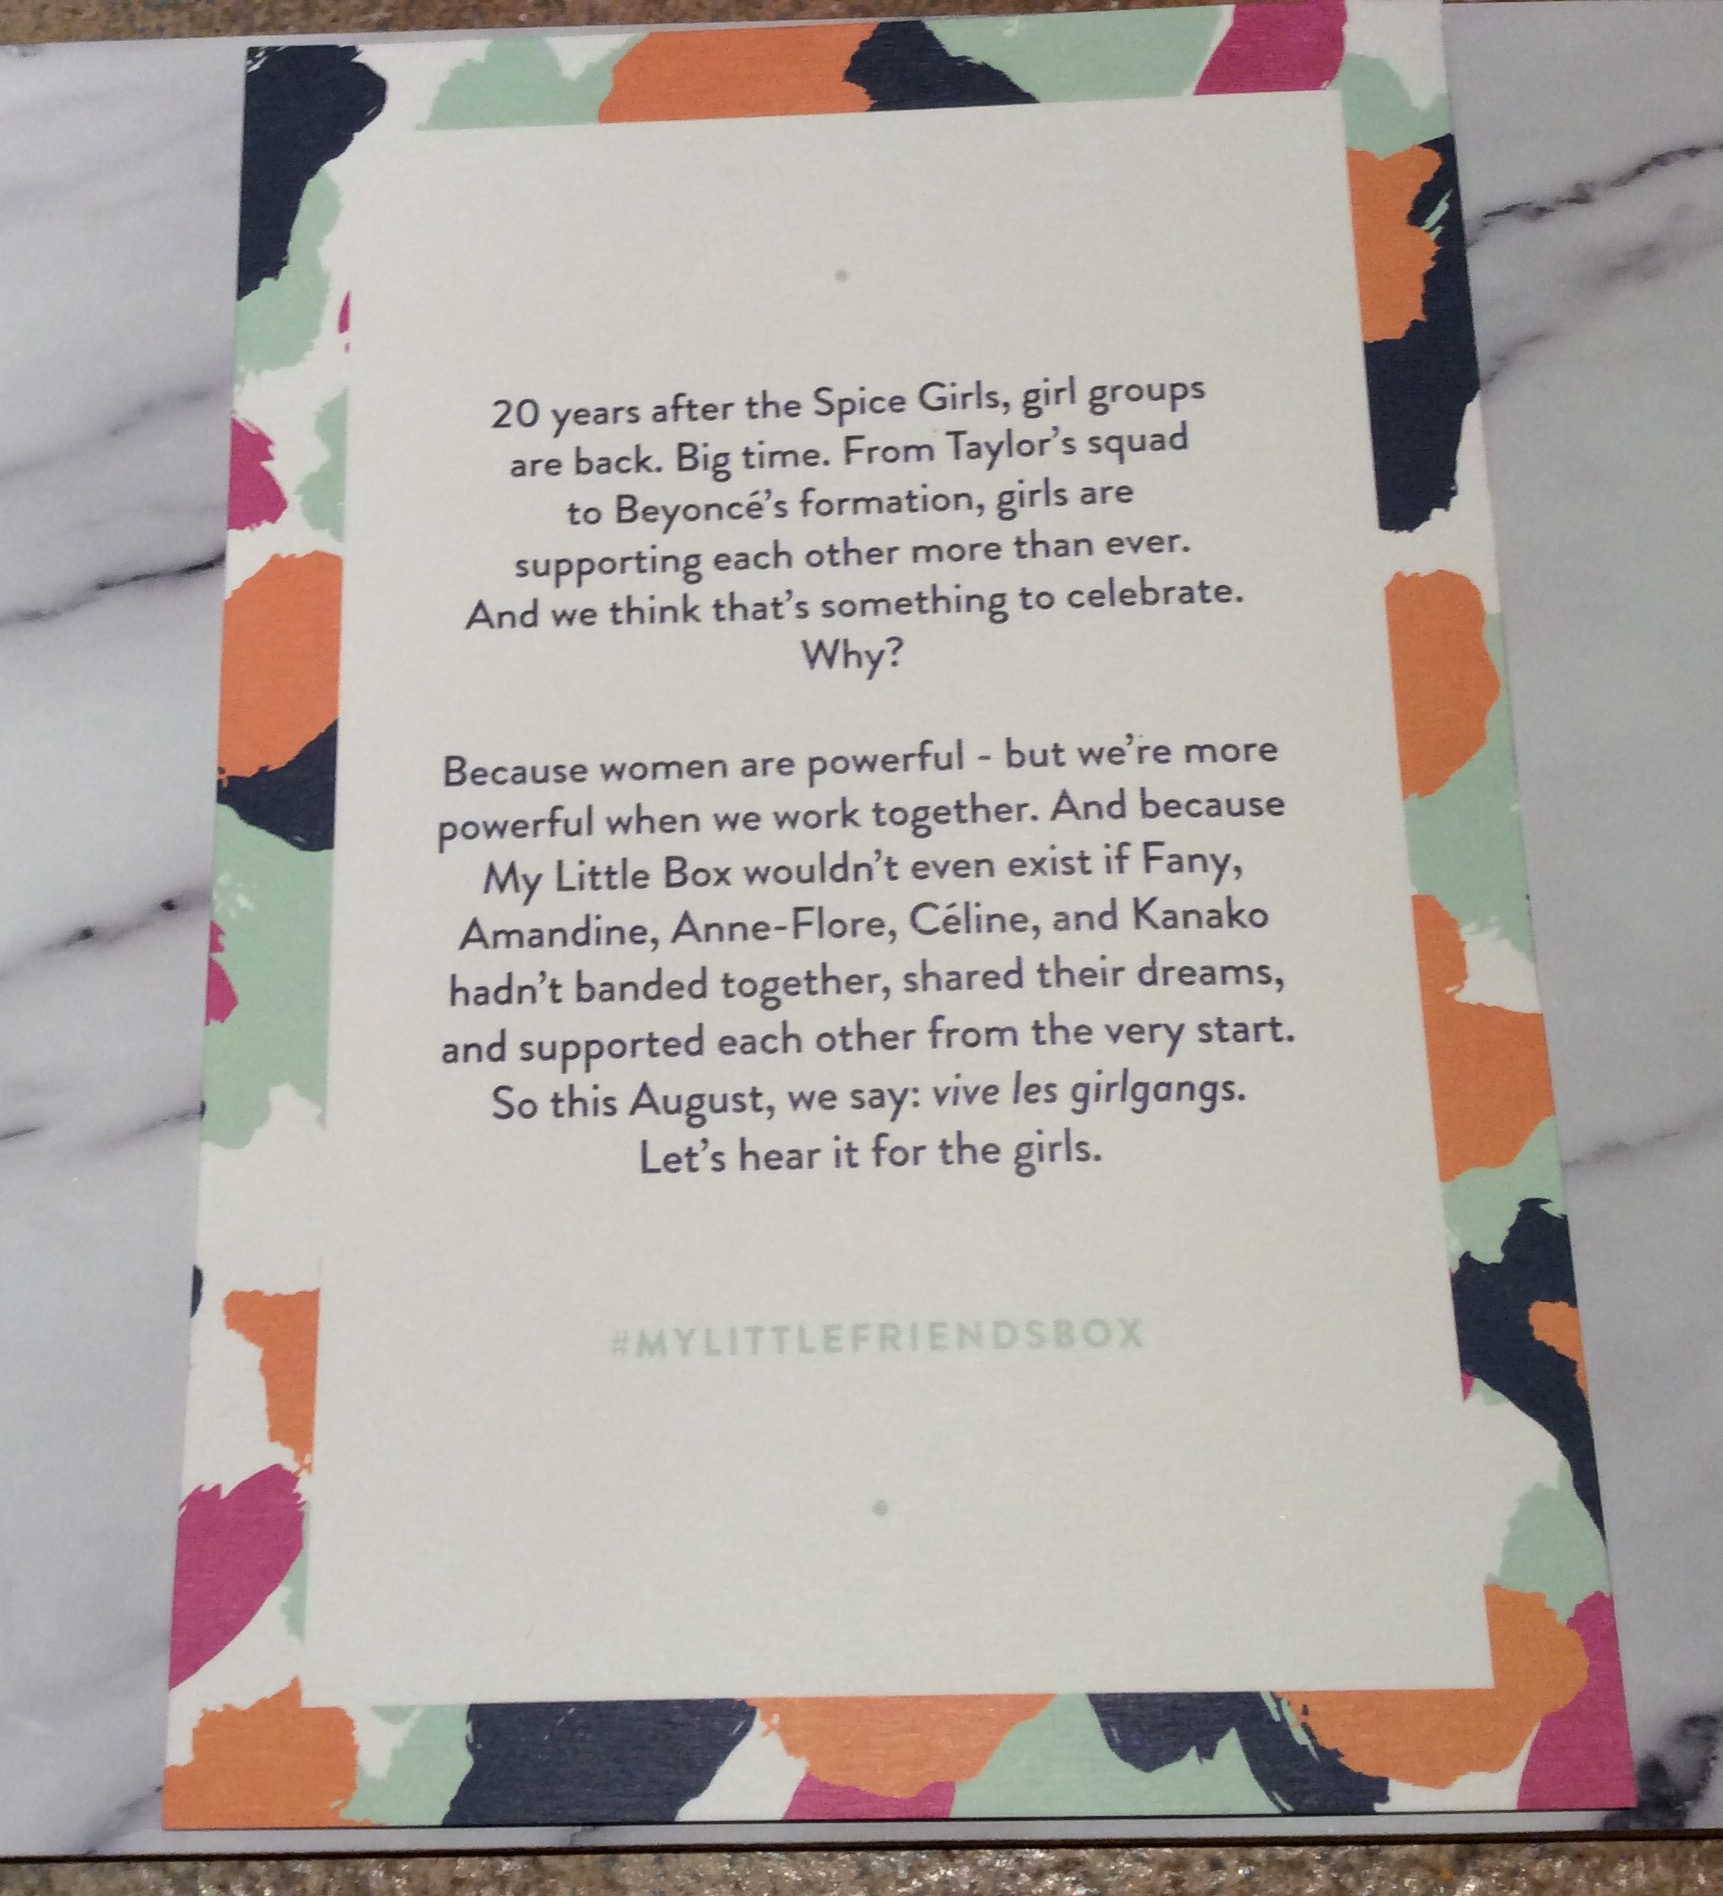 20 years after the Spice Girls, girl groups
are back. Big time. From Taylor's squad
to Beyoncé's formation, girls are
supporting each other more than ever.
And we think that's something to celebrate.
Why?
Because women are powerful - but we're more
powerful when we work together. And because
My Little Box wouldn't even exist if Fany,
Amandine, Anne-Flore, Céline, and Kanako
hadn't banded together, shared their dreams,
and supported each other from the very start.
So this August, we say: vive les girlgangs.
Let's hear it for the girls.
#MYLITTLEFRIENDSBOX